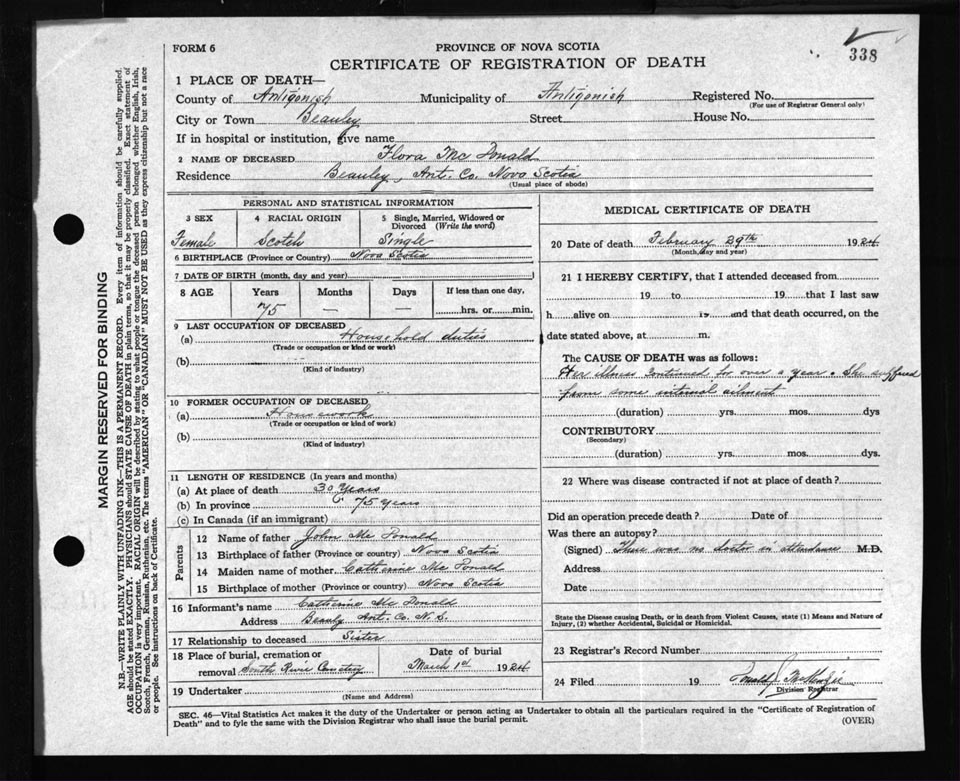 338
FORM 6
PROVINCE OF NOVA SCOTIA
CERTIFICATE OF REGISTRATION OF DEATH
1 PLACE OF DEATH—
County of Antigonish Municipality of Antigonish Registered No.
(For use of Registrar General only)
City or Town Beauley Street House No.
If in hospital or institution, give name
2 NAME OF DECEASED Flora Mc Donald
Residence Beauley, Ant. Co. Nova Scotia
(Usual place of abode)
PERSONAL AND STATISTICAL INFORMATION
3 SEX 4 RACIAL ORIGIN 5 Single, Married, Widowed or Divorced (Write the word)
Female Scotch Single
6 BIRTHPLACE (Province or Country) Nova Scotia
7 DATE OF BIRTH (month, day and year)
8 AGE Years Months Days If less than one day,
75 — — hrs. or min.
9 LAST OCCUPATION OF DECEASED
(a) Household duties
(Trade or occupation or kind or work)
(b)
(Kind of industry)
10 FORMER OCCUPATION OF DECEASED
(a) Housework
(Trade or occupation or kind of work)
(b)
(Kind of industry)
11 LENGTH OF RESIDENCE (In years and months)
(a) At place of death 30 Years
(b) In province 75 Years
(c) In Canada (if an immigrant)
Parents
12 Name of father John Mc Donald
13 Birthplace of father (Province or country) Nova Scotia
14 Maiden name of mother Catherine Mc Donald
15 Birthplace of mother (Province or country) Nova Scotia
16 Informant's name Catherine Mc Donald
Address Beauly Ant. Co. N.S.
17 Relationship to deceased Sister
18 Place of burial, cremation or Date of burial
removal South River Cemetery March 1st 1924
19 Undertaker
(Name and Address)
MEDICAL CERTIFICATE OF DEATH
20 Date of death February 29th 1924
(Month, day and year)
21 I HEREBY CERTIFY, that I attended deceased from
19 to 19 that I last saw
h alive on 19 and that death occurred, on the
date stated above, at m.
The CAUSE OF DEATH was as follows:
Her illness continued for over a year. She suffered
from some internal ailment
(duration) yrs. mos. dys
CONTRIBUTORY
(Secondary)
(duration) yrs. mos. dys.
22 Where was disease contracted if not at place of death?
Did an operation precede death? Date of
Was there an autopsy?
(Signed) There was no doctor in attendance M.D.
Address
Date
State the disease causing Death, or in death from Violent Causes, state (1) Means and Nature of
Injury, (2) whether Accidental, Suicidal or Homicidal.
23 Registrar's Record Number
24 Filed 19 Donald J. McKenzie
Division Registrar
SEC. 46—Vital Statistics Act makes it the duty of the Undertaker or person acting as Undertaker to obtain all the particulars required in the "Certificate of Registration of
Death" and to fyle the same with the Division Registrar who shall issue the burial permit.
(OVER)
MARGIN RESERVED FOR BINDING
N.B.—WRITE PLAINLY WITH UNFADING INK—THIS IS A PERMANENT RECORD. Every item of information should be carefully supplied.
AGE should be stated EXACTLY. PHYSICIANS should STATE CAUSE OF DEATH in plain terms, so that it may be properly classified. Exact statement of
OCCUPATION is very important. RACIAL ORIGIN will be described by stating to what people or tongue the deceased person belonged whether English, Irish,
Scotch, French, German, Russian, Ruthenian, etc. The terms "AMERICAN" OR "CANADIAN" MUST NOT BE USED as they express citizenship but not a race
or people. See instructions on back of Certificate.